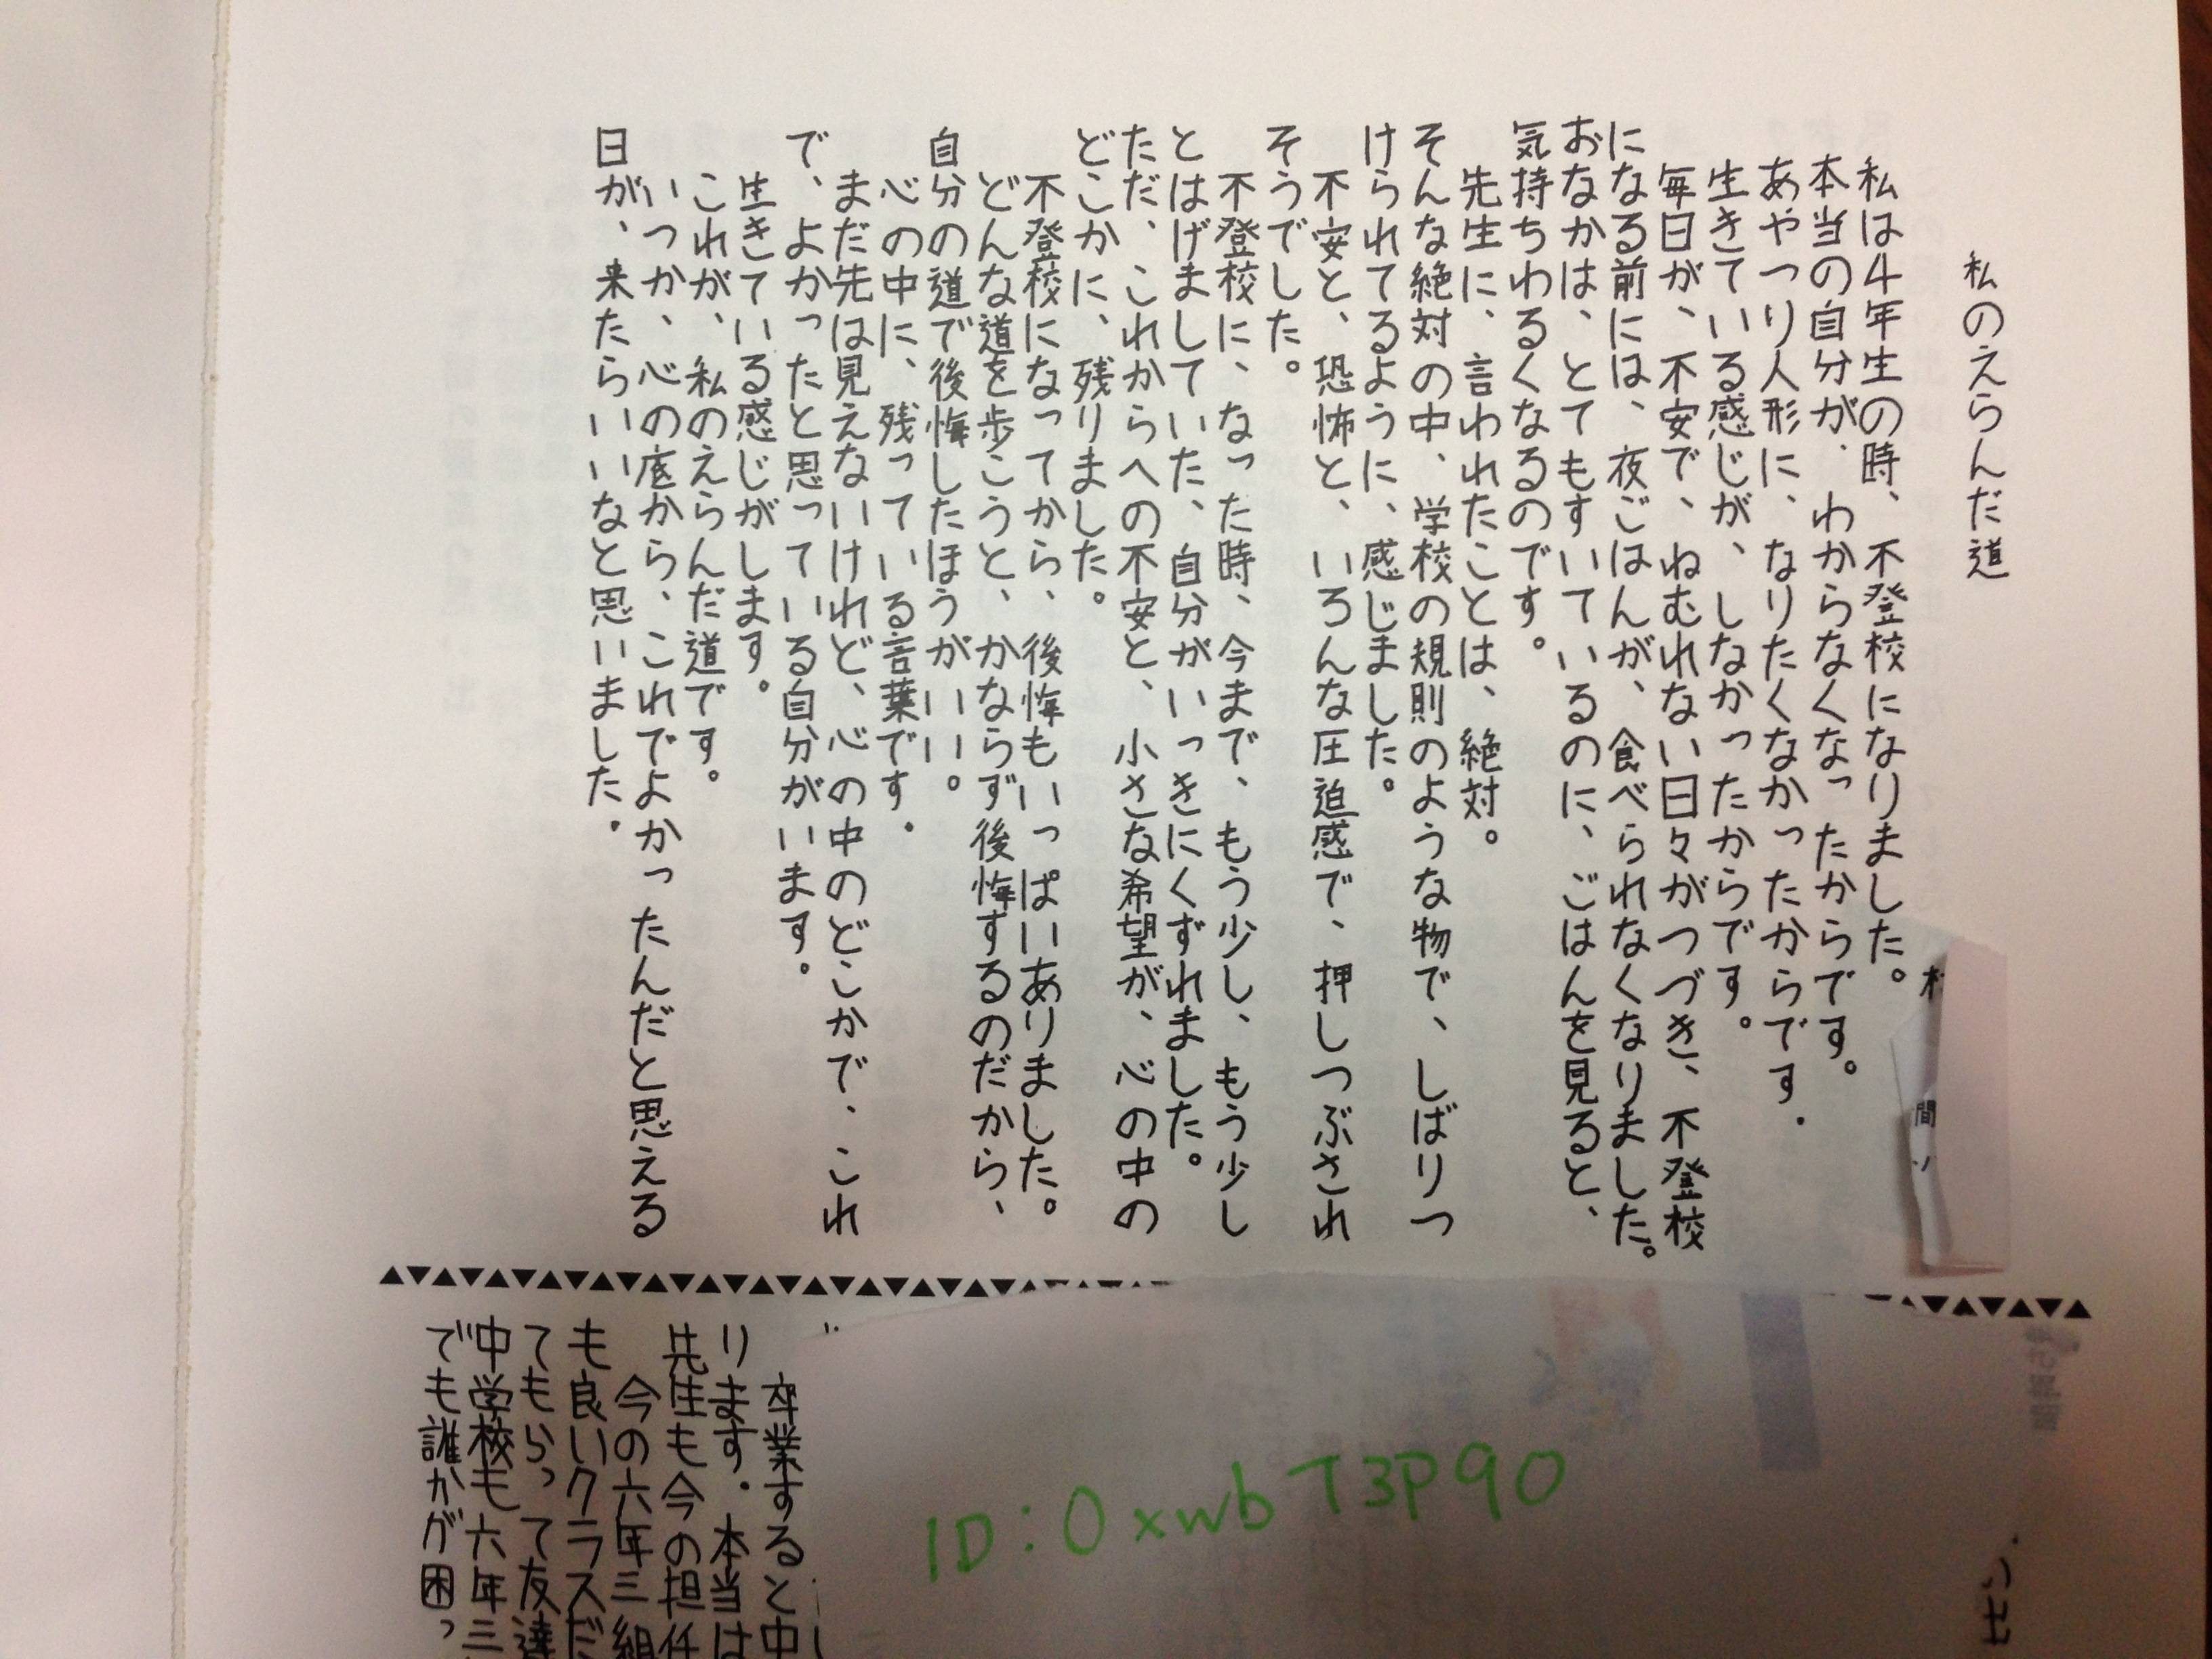 私のえらんだ道
私は4年生の時、不登校になりました。
本当の自分が、わからなくなったからです。
あやつり人形に、なりたくなかったからです.
生きている感じが、しなかったからです。
毎日が、不安で、ねむれない日々がつづき、不登校
になる前には、夜ごはんが、食べられなくなりました。
おなかは、とてもすいているのに、ごはんを見ると、
気持ちわるくなるのです。
先生に、言われたことは、絶対。
そんな絶対の中、学校の規則のような物で、しばりつ
けられてるように、感じました。
不安と、恐怖と、いろんな圧迫感で、押しつぶされ
そうでした。
不登校に、なった時、今まで、もう少し、もう少し
とはげましていた、自分がいっきにくずれました。
ただ、これからへの不安と、小さな希望が、心の中の
どこかに、残りました。
不登校になってから、後悔もいっぱいありました。
どんな道を歩こうと、かならず後悔するのだから、
自分の道で後悔したほうがいい。
心の中に、残っている言葉です.
まだ先は見えないけれど、心の中のどこかで、これ
で、よかったと思っている自分がいます。
生きている感じがします。
これが、私のえらんだ道です。
いつか、心の底から、これでよかったんだと思える
日が、来たらいいなと思いました.
卒業すると中
ります.本当は
先生も今の担任
今の六年三組
も良いクラスだ
てもらって友達
中学校も六年三
でも誰かが困っ
ID:0xwbT3P90
間